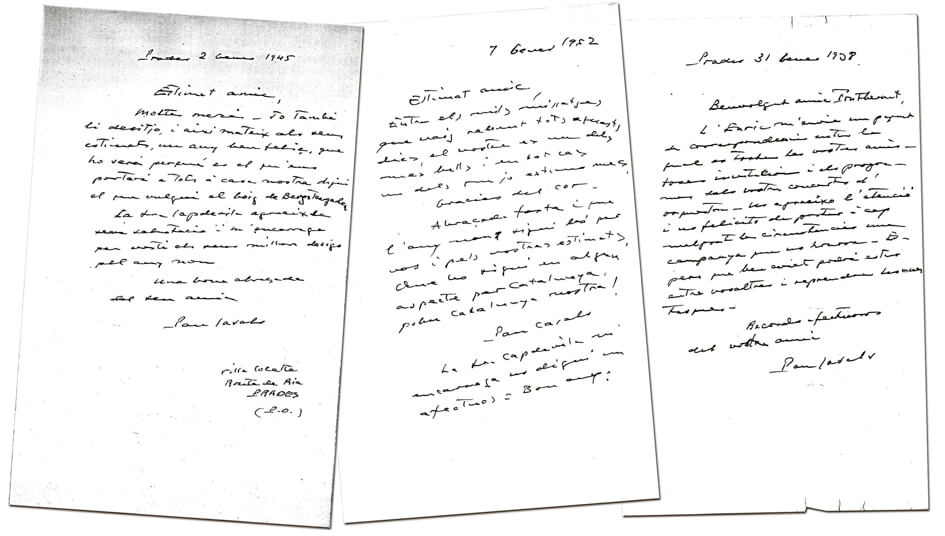 Prades 2 Gener 1945
Estimat amic,
Moltes mercès – Jo també
li desitjo, i així mateix als seus
estimats, un any ben feliç, que
ho serà perquè és el que ens
portarà a tots a casa nostra
el que vulgui el boig de Berchtesgaden
La Sra Capdevila agraeix la
seva salutació i m'encarrega
per vostè els seus millors desigs
pel any nou
Una bona abraçada
del seu amic
Pau Casals
Villa Colette
Route de Ria
PRADES
(P.O.)
7 Gener 1952
Estimat amic,
Entre els mils missatges
que vaig rebent tots aquests
dies, el vostre es un dels
mes bells i en tot cas
un dels que jo estimo mes
Gracies del cor –
Abraçada forta i que
l'any nou sigui bo per
vos i pels vostres estimats,
que ho sigui en algun
aspecte per Catalunya,
pobra Catalunya nostra!
Pau Casals
La Sra Capdevila m'
encarrega us digui un
afectuos = Bon any!
Prades 31 Gener 1938
Benvolgut amic
L'Enric m'envia un paquet
de correspondencia entre la
qual es troben les vostres
invitacions i els progra-
mes dels vostres concerts d'
orquestra – Us agraeixo l'atenció
i us felicito de portar a cap
malgrat les circumstancies una
campanya que us honora – Es-
pero que ben aviat podré estar
entre vosaltres i reprendre les meves
tasques –
Records afectuosos
del vostre amic
Pau Casals